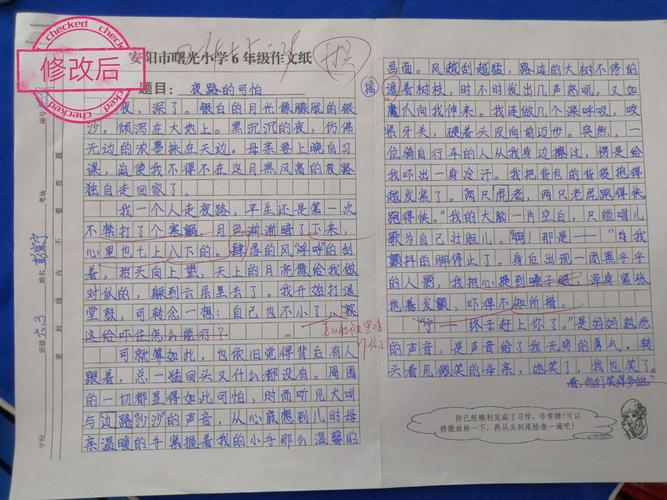 checked
修改后
checked
安阳市曙光小学6年级作文纸
题目：夜路的可怕
夜，深了。银白的月光像朦胧的银
沙，倾泻在大地上。黑沉沉的夜，仿佛
无边的浓墨抹在天边。母亲要上晚自习
课，迫使我不得不在这月黑风高的夜路
独自走回家了。
我一个人走夜路，平生还是第一次
不禁打了个寒颤。月色渐渐暗了下来，
心里也七上八下的。肆虐的风“呼呼”的刮
着，把头向上望，天上的月亮像给我做
对似的，躲到云层里去了。我开始打退
堂鼓，可转念一想：自己也不小了，
这给吓住怎么能行？
可就算如此，也依旧觉得背后有人
跟着，总一猛回头又什么都没有。周围
的一切都显得如此可怕，时而听见大叫
与边路沙沙的声音，从心底想到儿时母
亲温暖的手紧握着我的小手那么温馨的
画面。风越刮越猛，路边的大树不停的
摇着树枝，时不时发出几声怒吼，又如
魔爪向我伸来。我连做几个深呼吸，咬
紧牙关，硬着头皮向前迈步。突然，一
位骑自行车的人从我身边擦过，愣是给
我吓出一身冷汗。我把背包的背袋抱得
越发紧了。“两只虎老，两只老虎跑得快
跑得快。”我的大脑一片空白，只能唱儿
歌为自己壮胆儿。“啊！那是——”我
颤抖的脚停止了。身后出现一团黑乎乎
的人影，我把心提到嗓子眼，浑身紧张
抱着发颤，吓得不知所措。
终于赶上你了。”是妈妈熟悉
的声音，是声音给了我无穷的勇气。转
头看见微笑的母亲，她笑了，我也笑了。
你已经顺利完成了习作，非常棒！可以
稍微放松一下，再从头到尾检查一遍吧！
学校
班级 六.3
姓名
考场
座号
密封线内不要答题